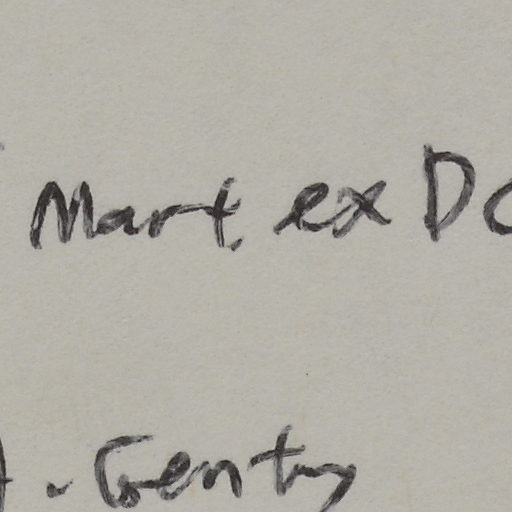 Mart. ex D
. Gentry